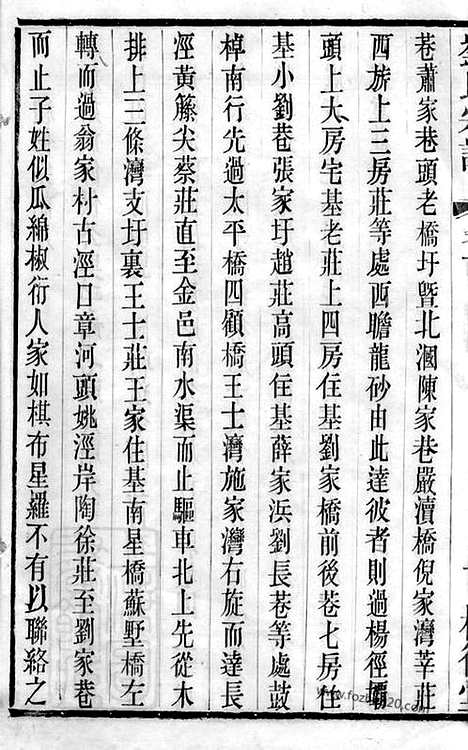 巷蕭家巷頭老橋圩暨北溷陳家巷嚴瀆橋倪家灣莘莊
西族上三房莊等處西瞻龍砂由此達彼者則過楊徑壩
頭上大房宅基老莊上四房住基劉家橋前後巷七房住
基小劉巷張家圩趙莊高頭住基薛家浜劉長巷等處鼓
棹南行先過太平橋四顧橋王士灣施家灣右旋而達長
涇黃籐尖蔡莊直至金邑南水渠而止驅車北上先從木
排上三條灣支圩裏王士莊王家住基南星橋蘇墅橋左
轉而過翁家朴古涇口章河頭姚涇岸陶徐莊至劉家巷
而止子姓似瓜綿椒衍人家如棋布星羅不有以聯絡之
www.fozhu920.com